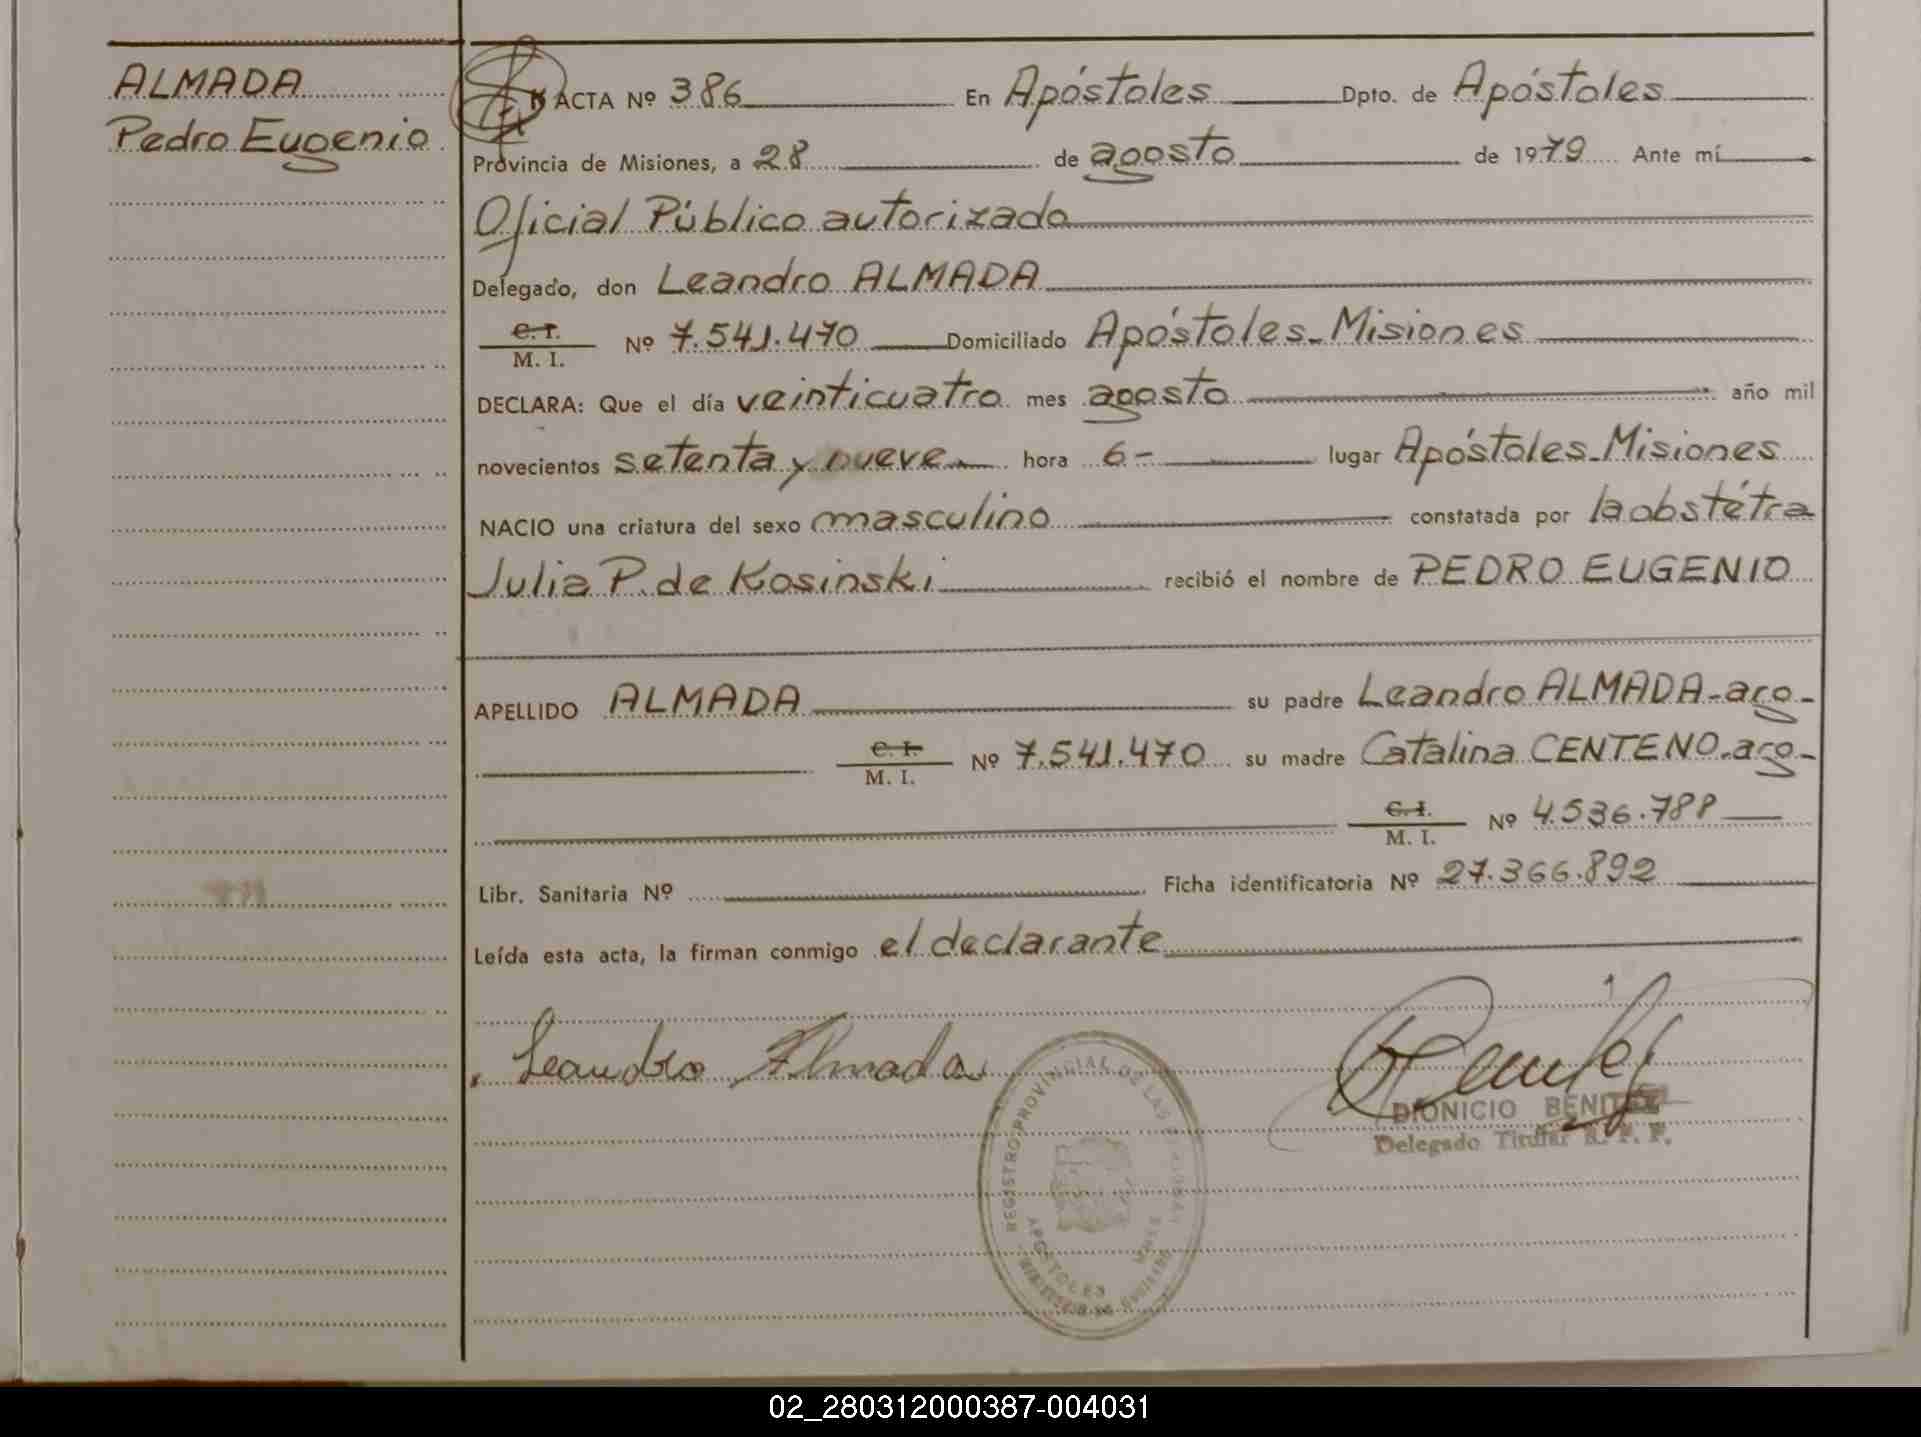 ALMADA
Pedro Eugenio
ACTA Nº 386 En Apóstoles Dpto. de Apóstoles
Provincia de Misiones, a 28 de agosto de 1979 Ante mí
Oficial Público autorizado
Delegado, don Leandro ALMADA
C. I.
M. I. Nº 7.541.470 Domiciliado Apóstoles-Misiones
DECLARA: Que el día veinticuatro mes agosto año mil
novecientos setenta y nueve hora 6- lugar Apóstoles-Misiones
NACIO una criatura del sexo masculino constatada por la obstétra
Julia P. de Kosinski recibió el nombre de PEDRO EUGENIO
APELLIDO ALMADA su padre Leandro ALMADA-arg-
C. I.
M. I. Nº 7.541.470 su madre Catalina CENTENO-arg-
C. I.
M. I. Nº 4.536.788
Libr. Sanitaria Nº Ficha identificatoria Nº 27.366.892
Leída esta acta, la firman conmigo el declarante
Leandro Almada
DIONICIO BENITEZ
Delegado Titular R. P. P.
REGISTRO PROVINCIAL DE LAS
APOSTOLES
02_280312000387-004031